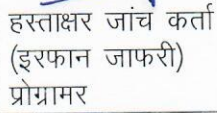 हस्ताक्षर जांच कर्ता
(इरफान जाफरी)
प्रोग्रामर